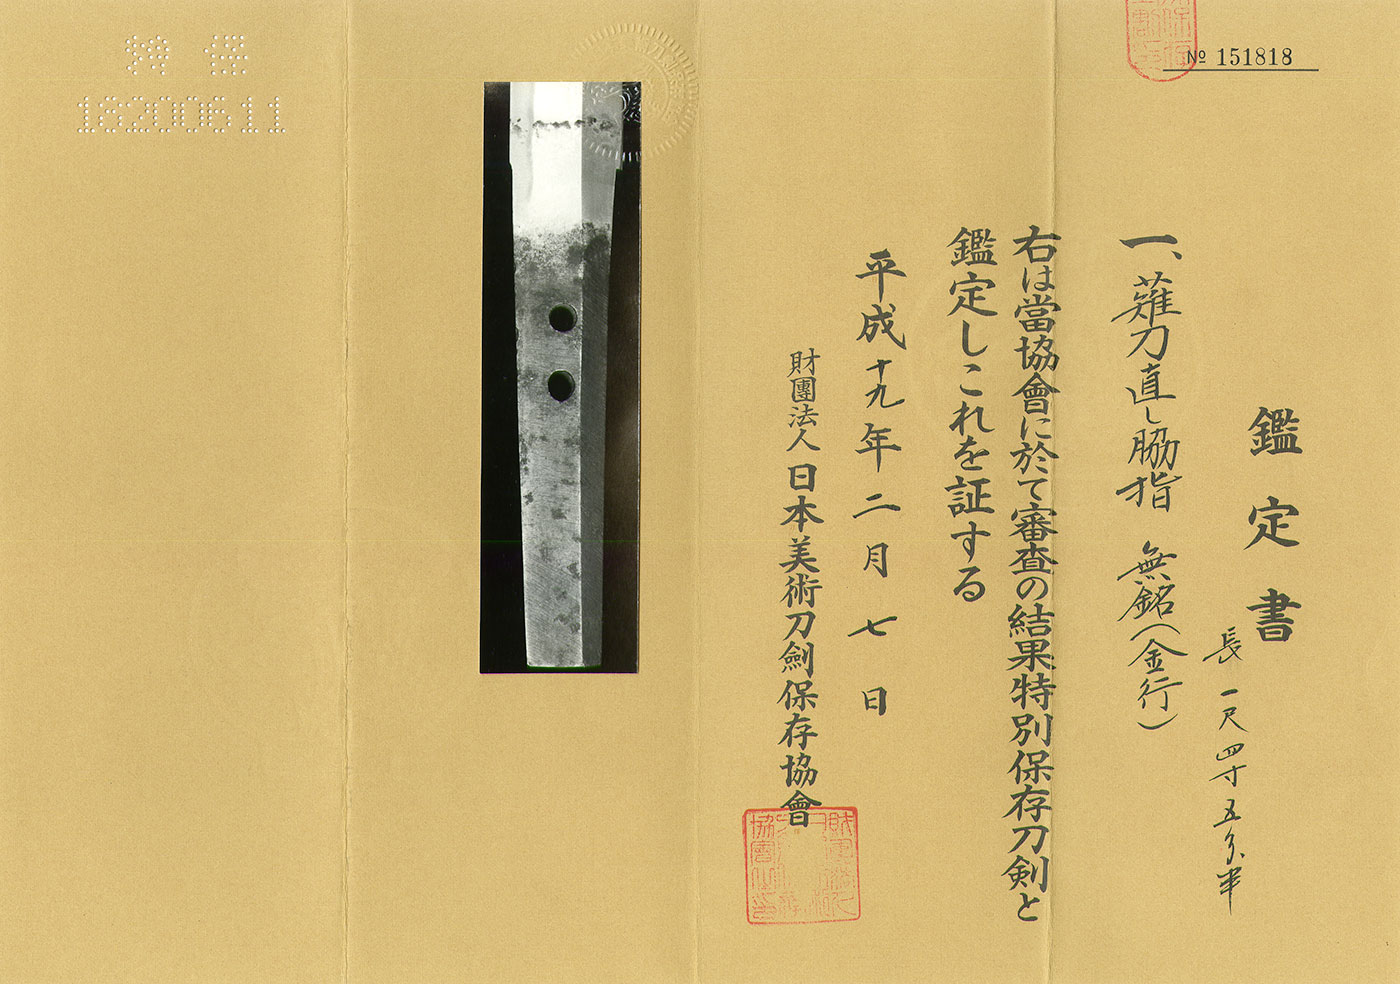 № 151818
鑑定書
長 一尺四寸五分半
一、薙刀直し脇指 無銘(金行)
右は當協會に於て審査の結果特別保存刀剣と
鑑定しこれを証する
平成十九年二月七日
財團法人日本美術刀劍保存協會
特保
18200611